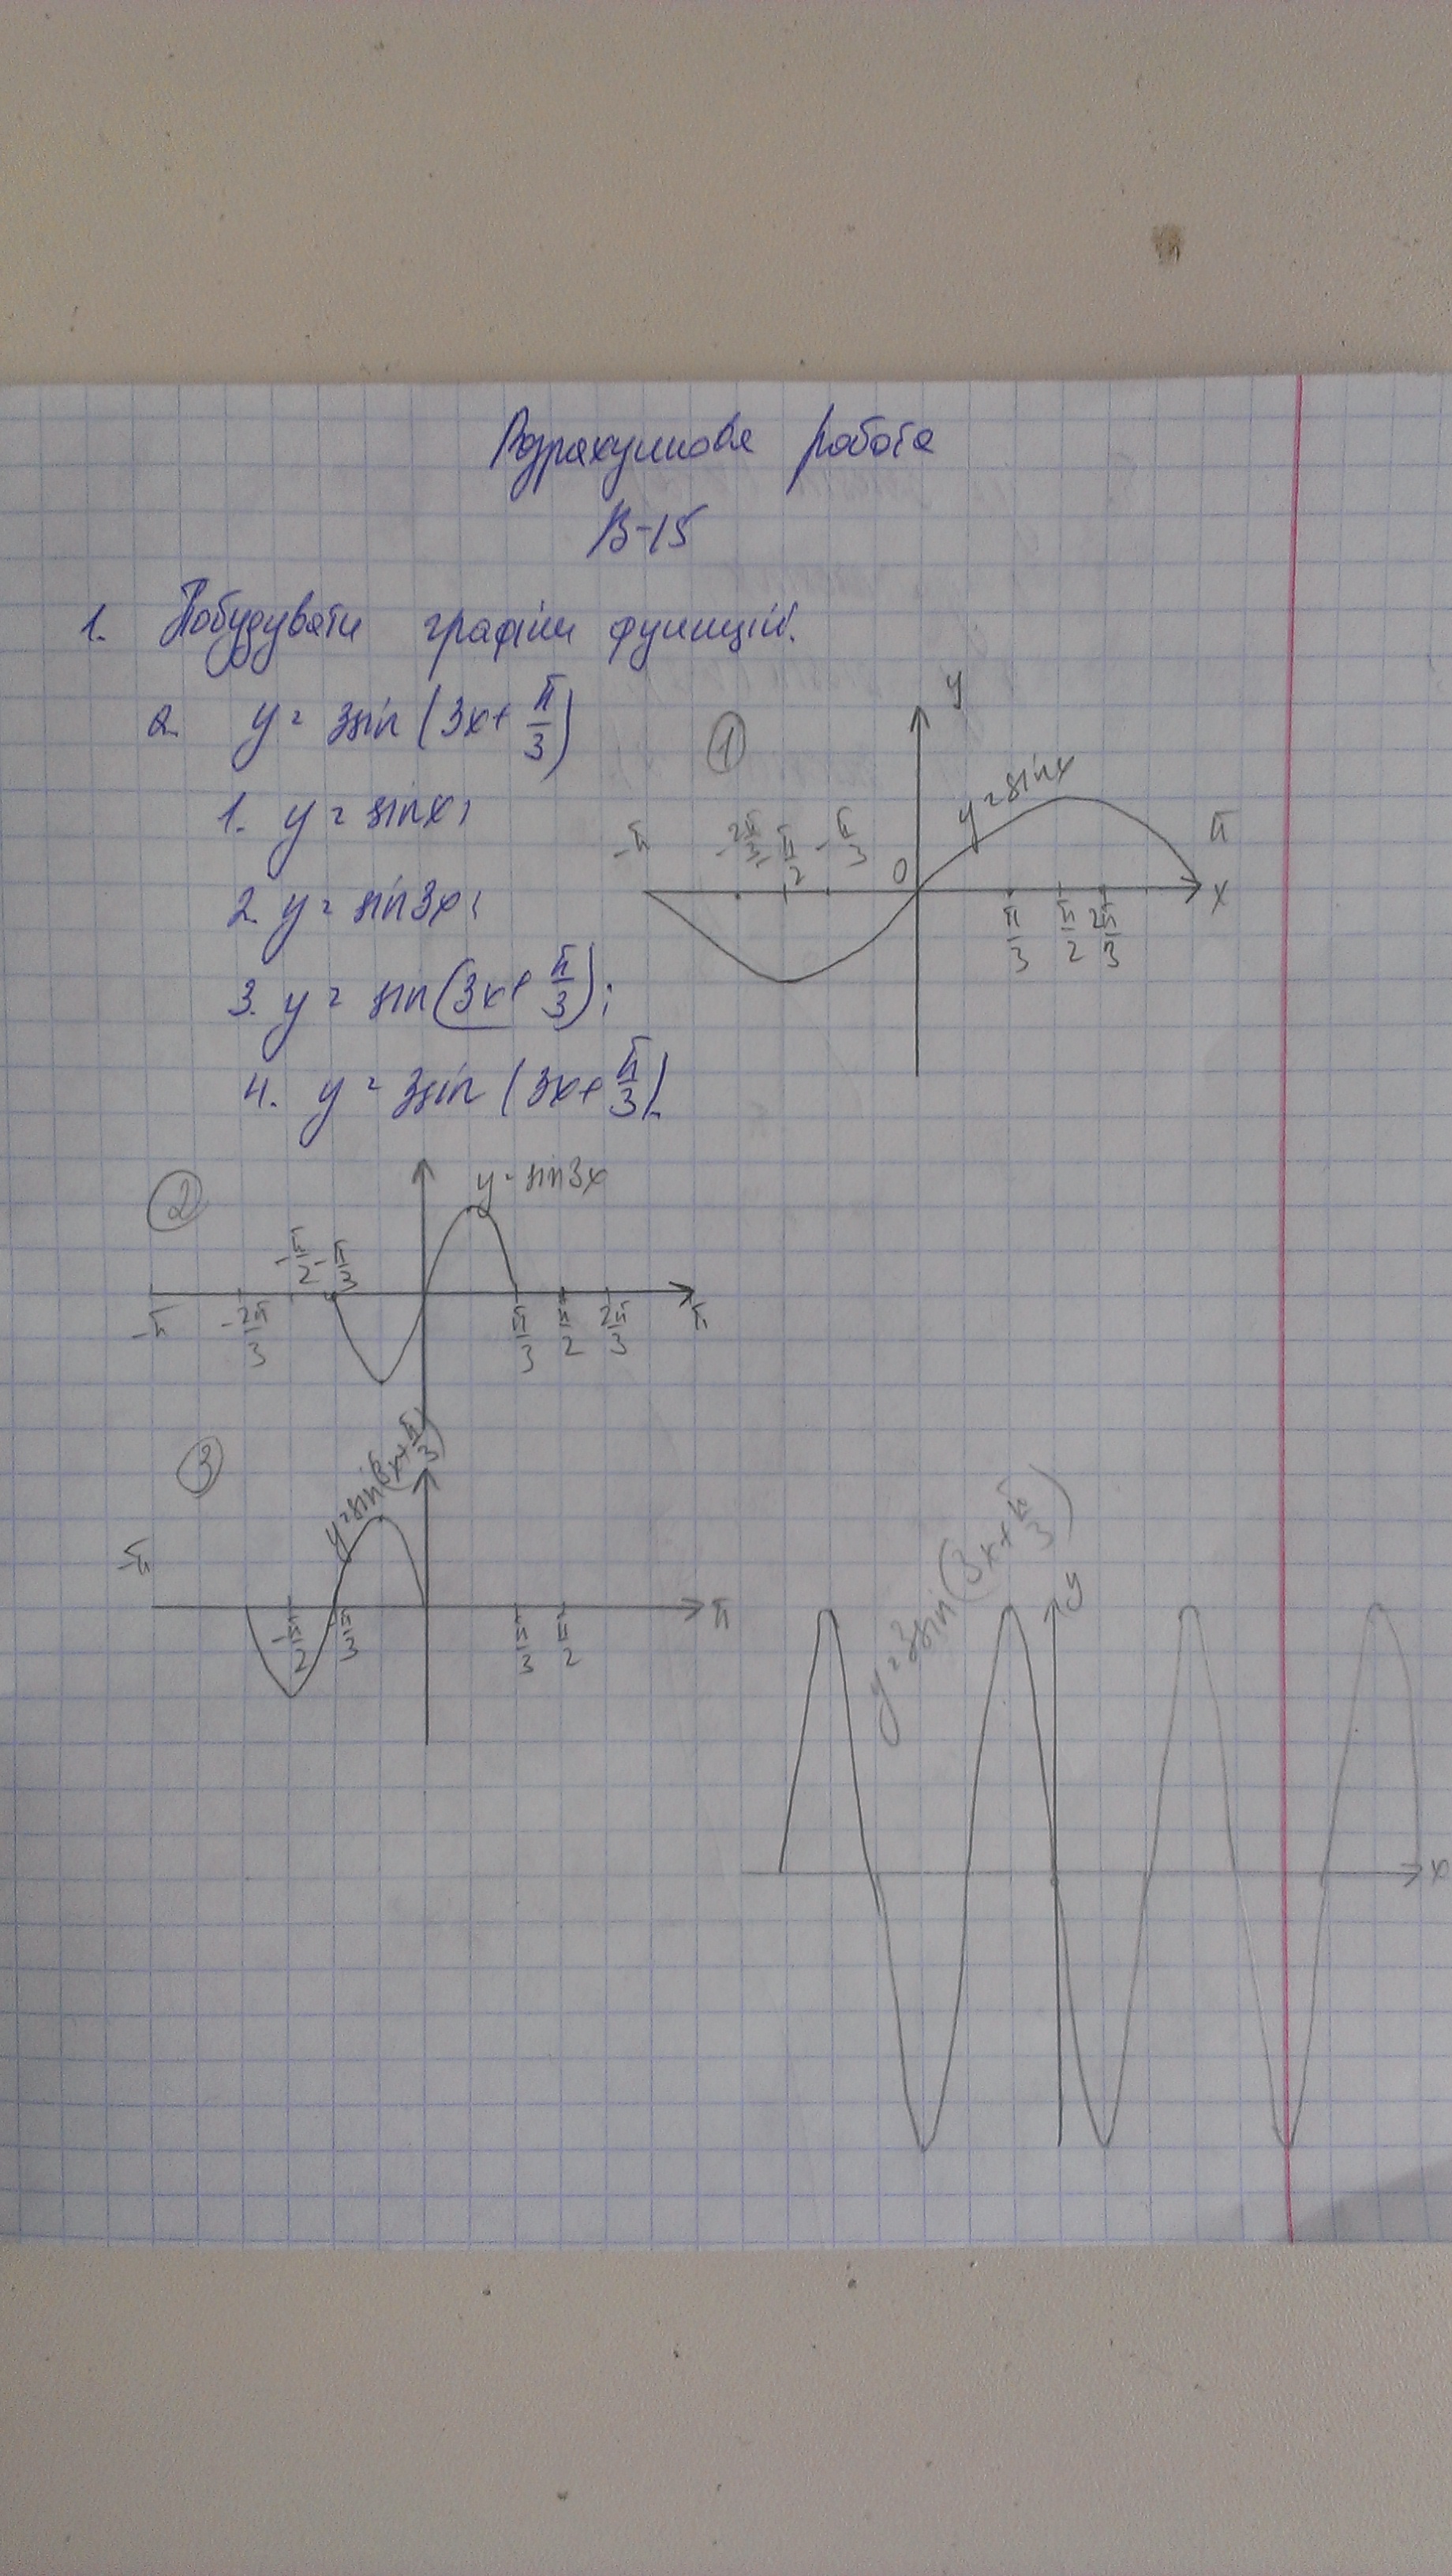 Розрахункова робота
В-15
1. Побудувати графіки функцій.
a. y = 3sin (3x + π/3)
1. y = sinx;
2. y = sin3x;
3. y = sin(3x + π/3);
4. y = 3sin (3x + π/3).
① y
y = sinx
-π -2π/3 -π/2 -π/3 0 π
π/3 π/2 2π/3 x
② y = sin3x
-π/2 -π/3
-π -2π/3 π/3 π/2 2π/3 π
③ y = sin(3x + π/3)
-π π
-π/2 -π/3 π/3 π/2
y = 3sin(3x + π/3)
y
x